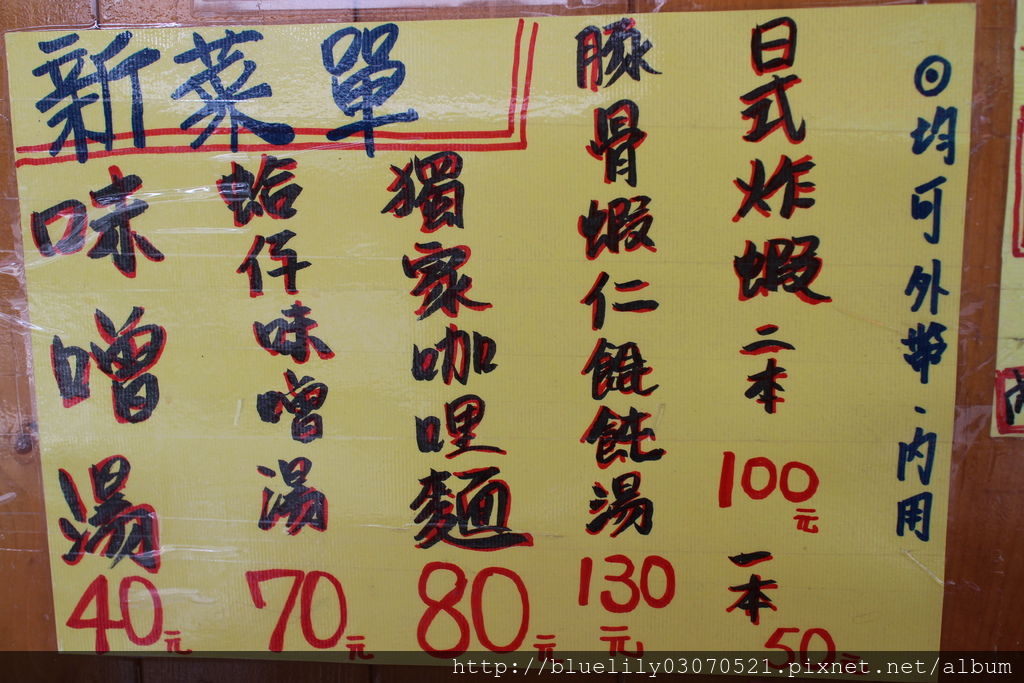 ◎均可外帶.內用
日式炸蝦二本100元
一本50元
豚骨蝦仁餛飩湯130元
新菜單
獨家咖哩麵80元
蛤仔味噌湯70元
味噌湯40元
http://bluelily03070521.pixnet.net/album